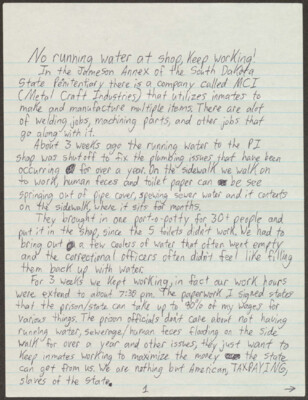 No running water at shop, Keep working!
In the Jameson Annex of the South Dakota
State Penitentiary there is a company called MCI
(Metal Craft Industries) that utilizes inmates to
make and manufacture multiple items. There are alot
of welding jobs, machining parts, and other jobs that
go along with it.
About 3 weeks ago the running water to the PI
shop was shutoff to fix the plumbing issues that have been
occurring for over a year. On the sidewalk we walk on
to work, human feces and toilet paper can be see
springing out of pipe cover, spewing sower water and it
on the sidewalk where it sits for months.
They brought in one porta-potty for 30+ people and
put it in the shop, since the 5 toilets didn't work. We had to
bring out a few coolers of water that often went empty
and the correctional officers often didn't feel like filling
them back up with water.
For 3 weeks we kept working, in fact our work hours
were extend to about 7:30 pm. The paperwork I signed states
that the prison/state can take up to 90% of my wages for
various things. The prison officials don't care about not having
running water, sewerage/human feces flooding on the side
walk for over a year and other issues, they just want to
keep inmates working to maximize the money the state
can get from us. We are nothing but American, TAXPAYING,
slaves of the state.
1 →